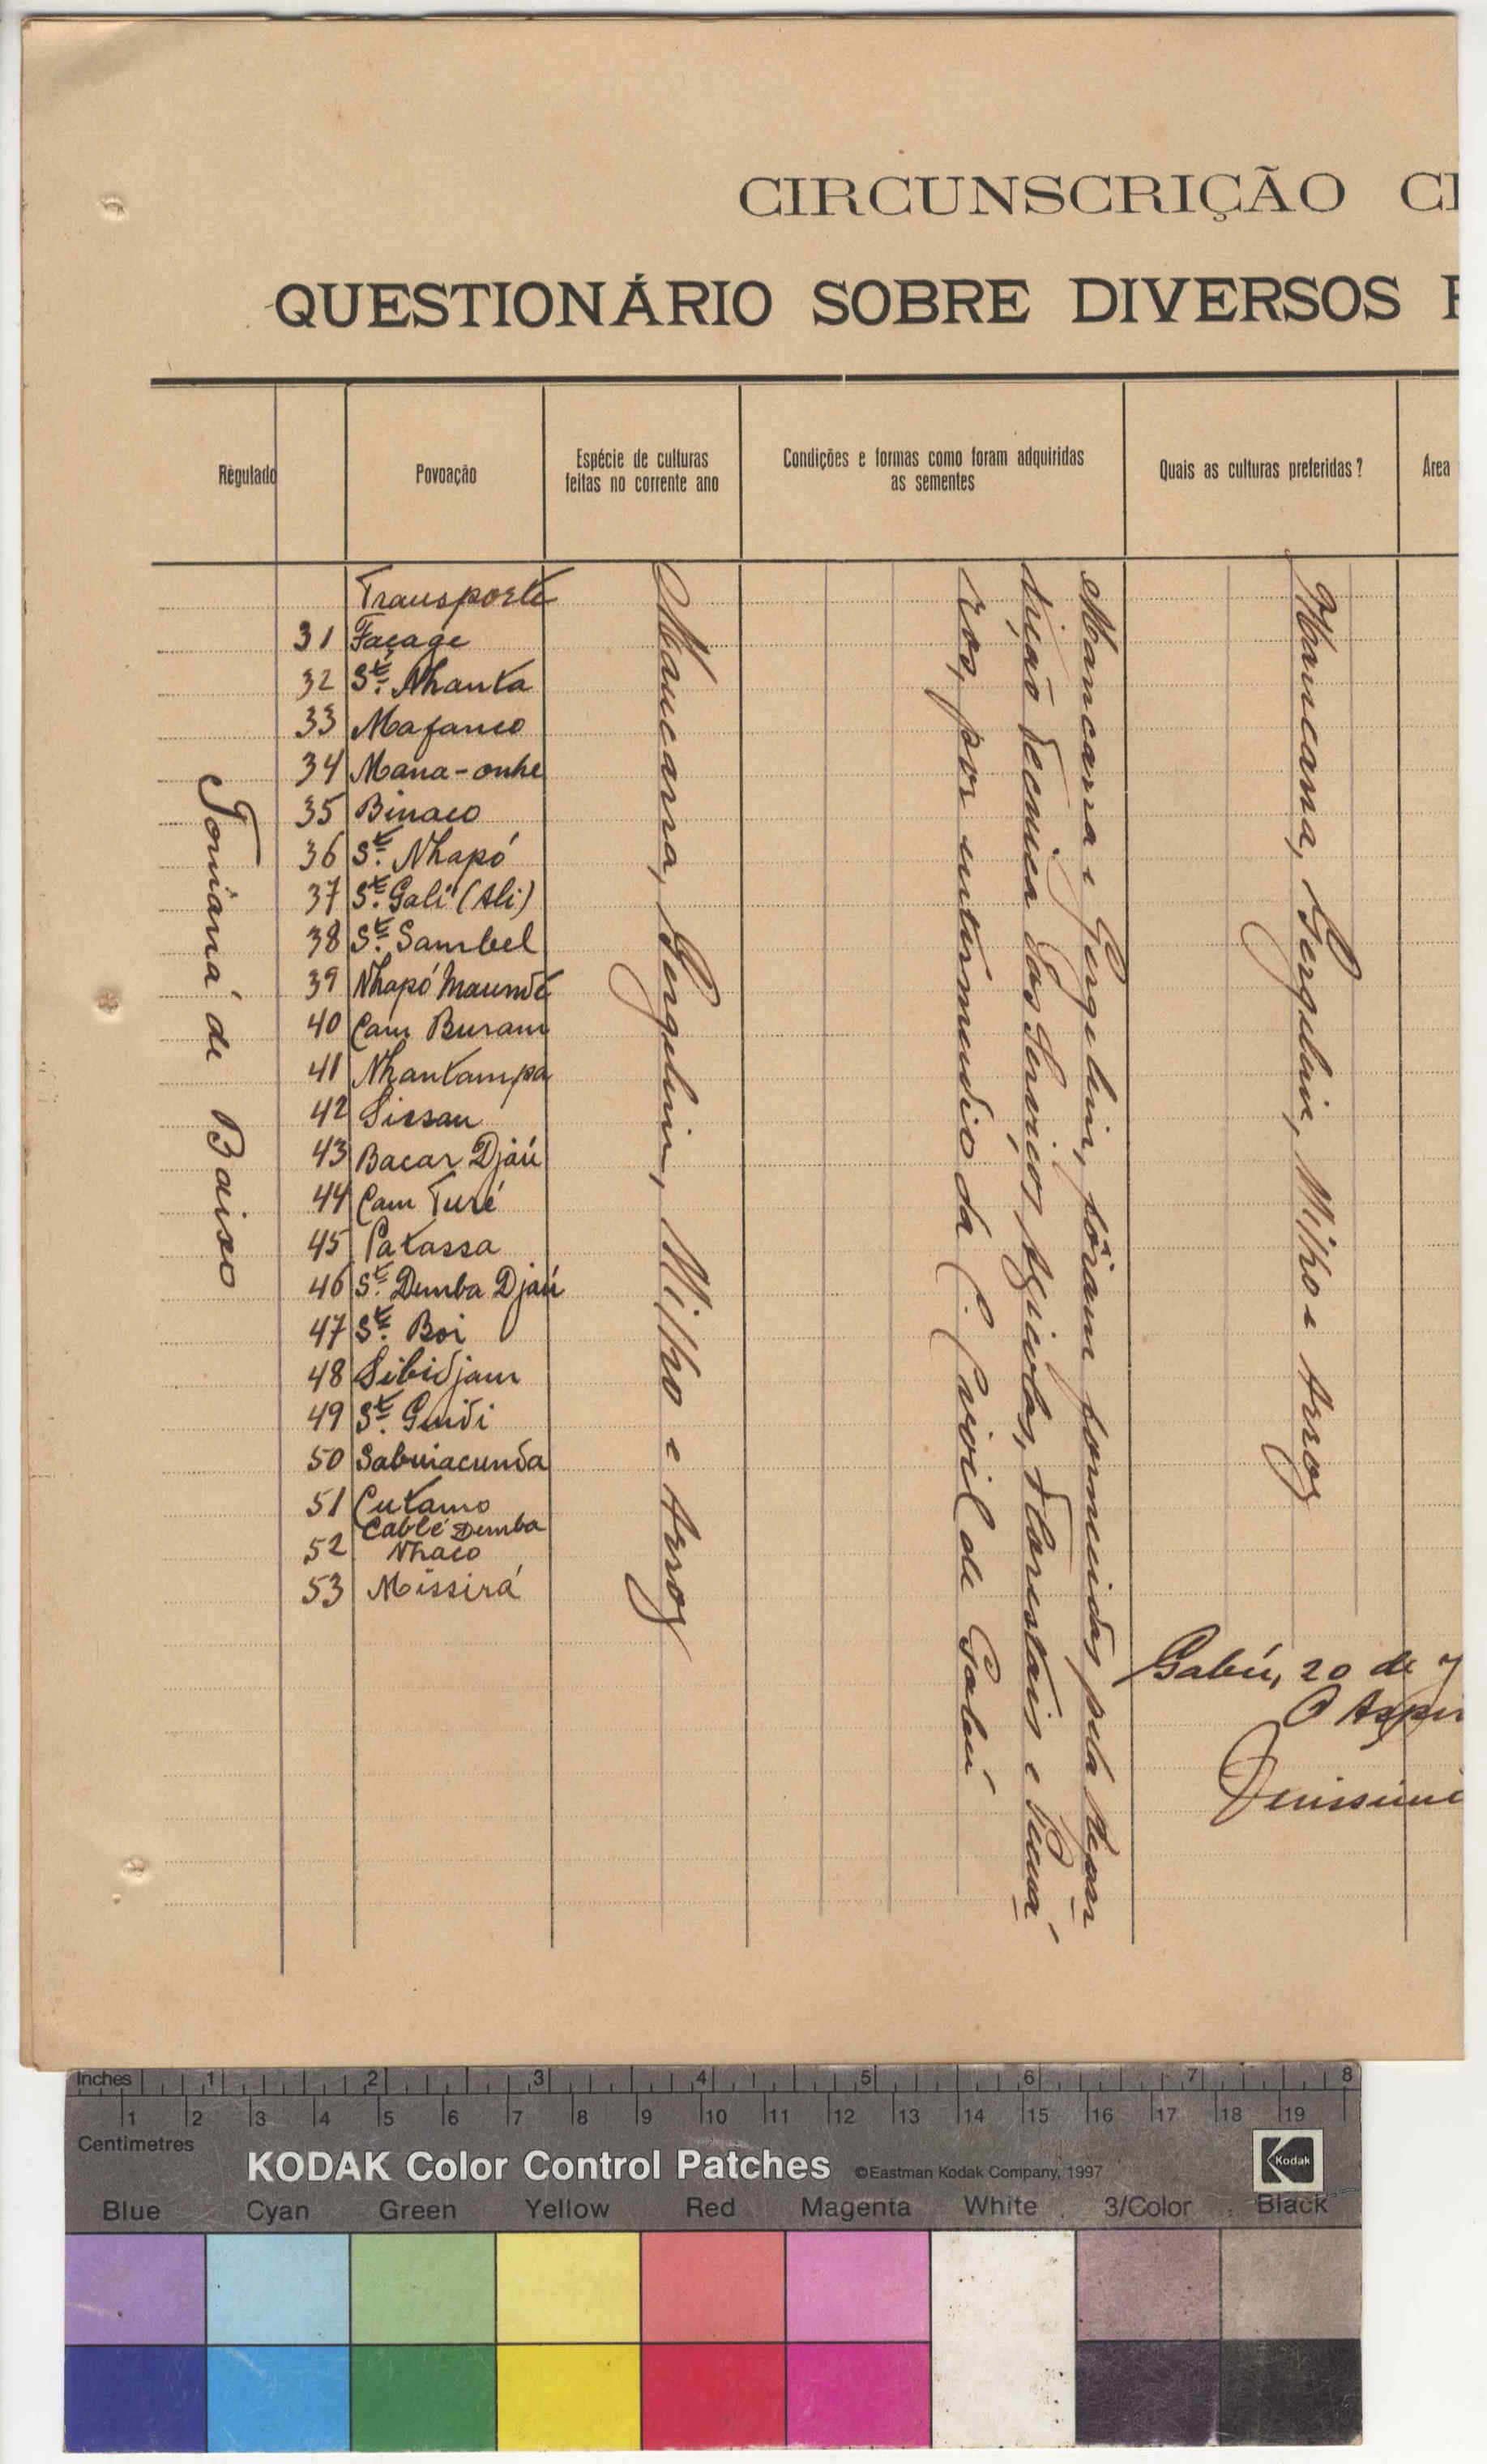 CIRCUNSCRIÇÃO CI
QUESTIONÁRIO SOBRE DIVERSOS
Régulado
Povoação
Espécie de culturas
feitas no corrente ano
Condições e formas como foram adquiridas
as sementes
Quais as culturas preferidas?
Área
Transporte
31 Façage
32 St.e Nhanta
33 Mafanco
34 Mana-onhe
35 Binaco
36 St.e Nhapó
37 St.e Gali (Ali)
38 St.e Sambel
39 Nhapó Maundé
40 Cam Buram
41 Nhantampa
42 Sissau
43 Bacar Djaú
44 Cam Turé
45 Patassa
46 St.e Demba Djaú
47 St.e Boi
48 Sibidjam
49 St.e Guidi
50 Sabuiacunda
51 Cutamo
52 Cablé Demba
Nhaco
53 Missirá
de Baixo
Mancarra, Gergelim, Milho e Arroz
Mancarra e Gergelim, fôram fornecidas pela Repar
tição Tecnica dos Serviços Agricolas, Florestais e Pecuá
rios, por intermedio da C. Civil de Gabú
Mancarra, Gergelim, Milho e Arroz
Gabú, 20 de
O Aspir
KODAK Color Control Patches
©Eastman Kodak Company, 1997
Kodak
Inches 1 2 3 4 5 6 7 8
1 2 3 4 5 6 7 8 9 10 11 12 13 14 15 16 17 18 19
Centimetres
Blue Cyan Green Yellow Red Magenta White 3/Color Black